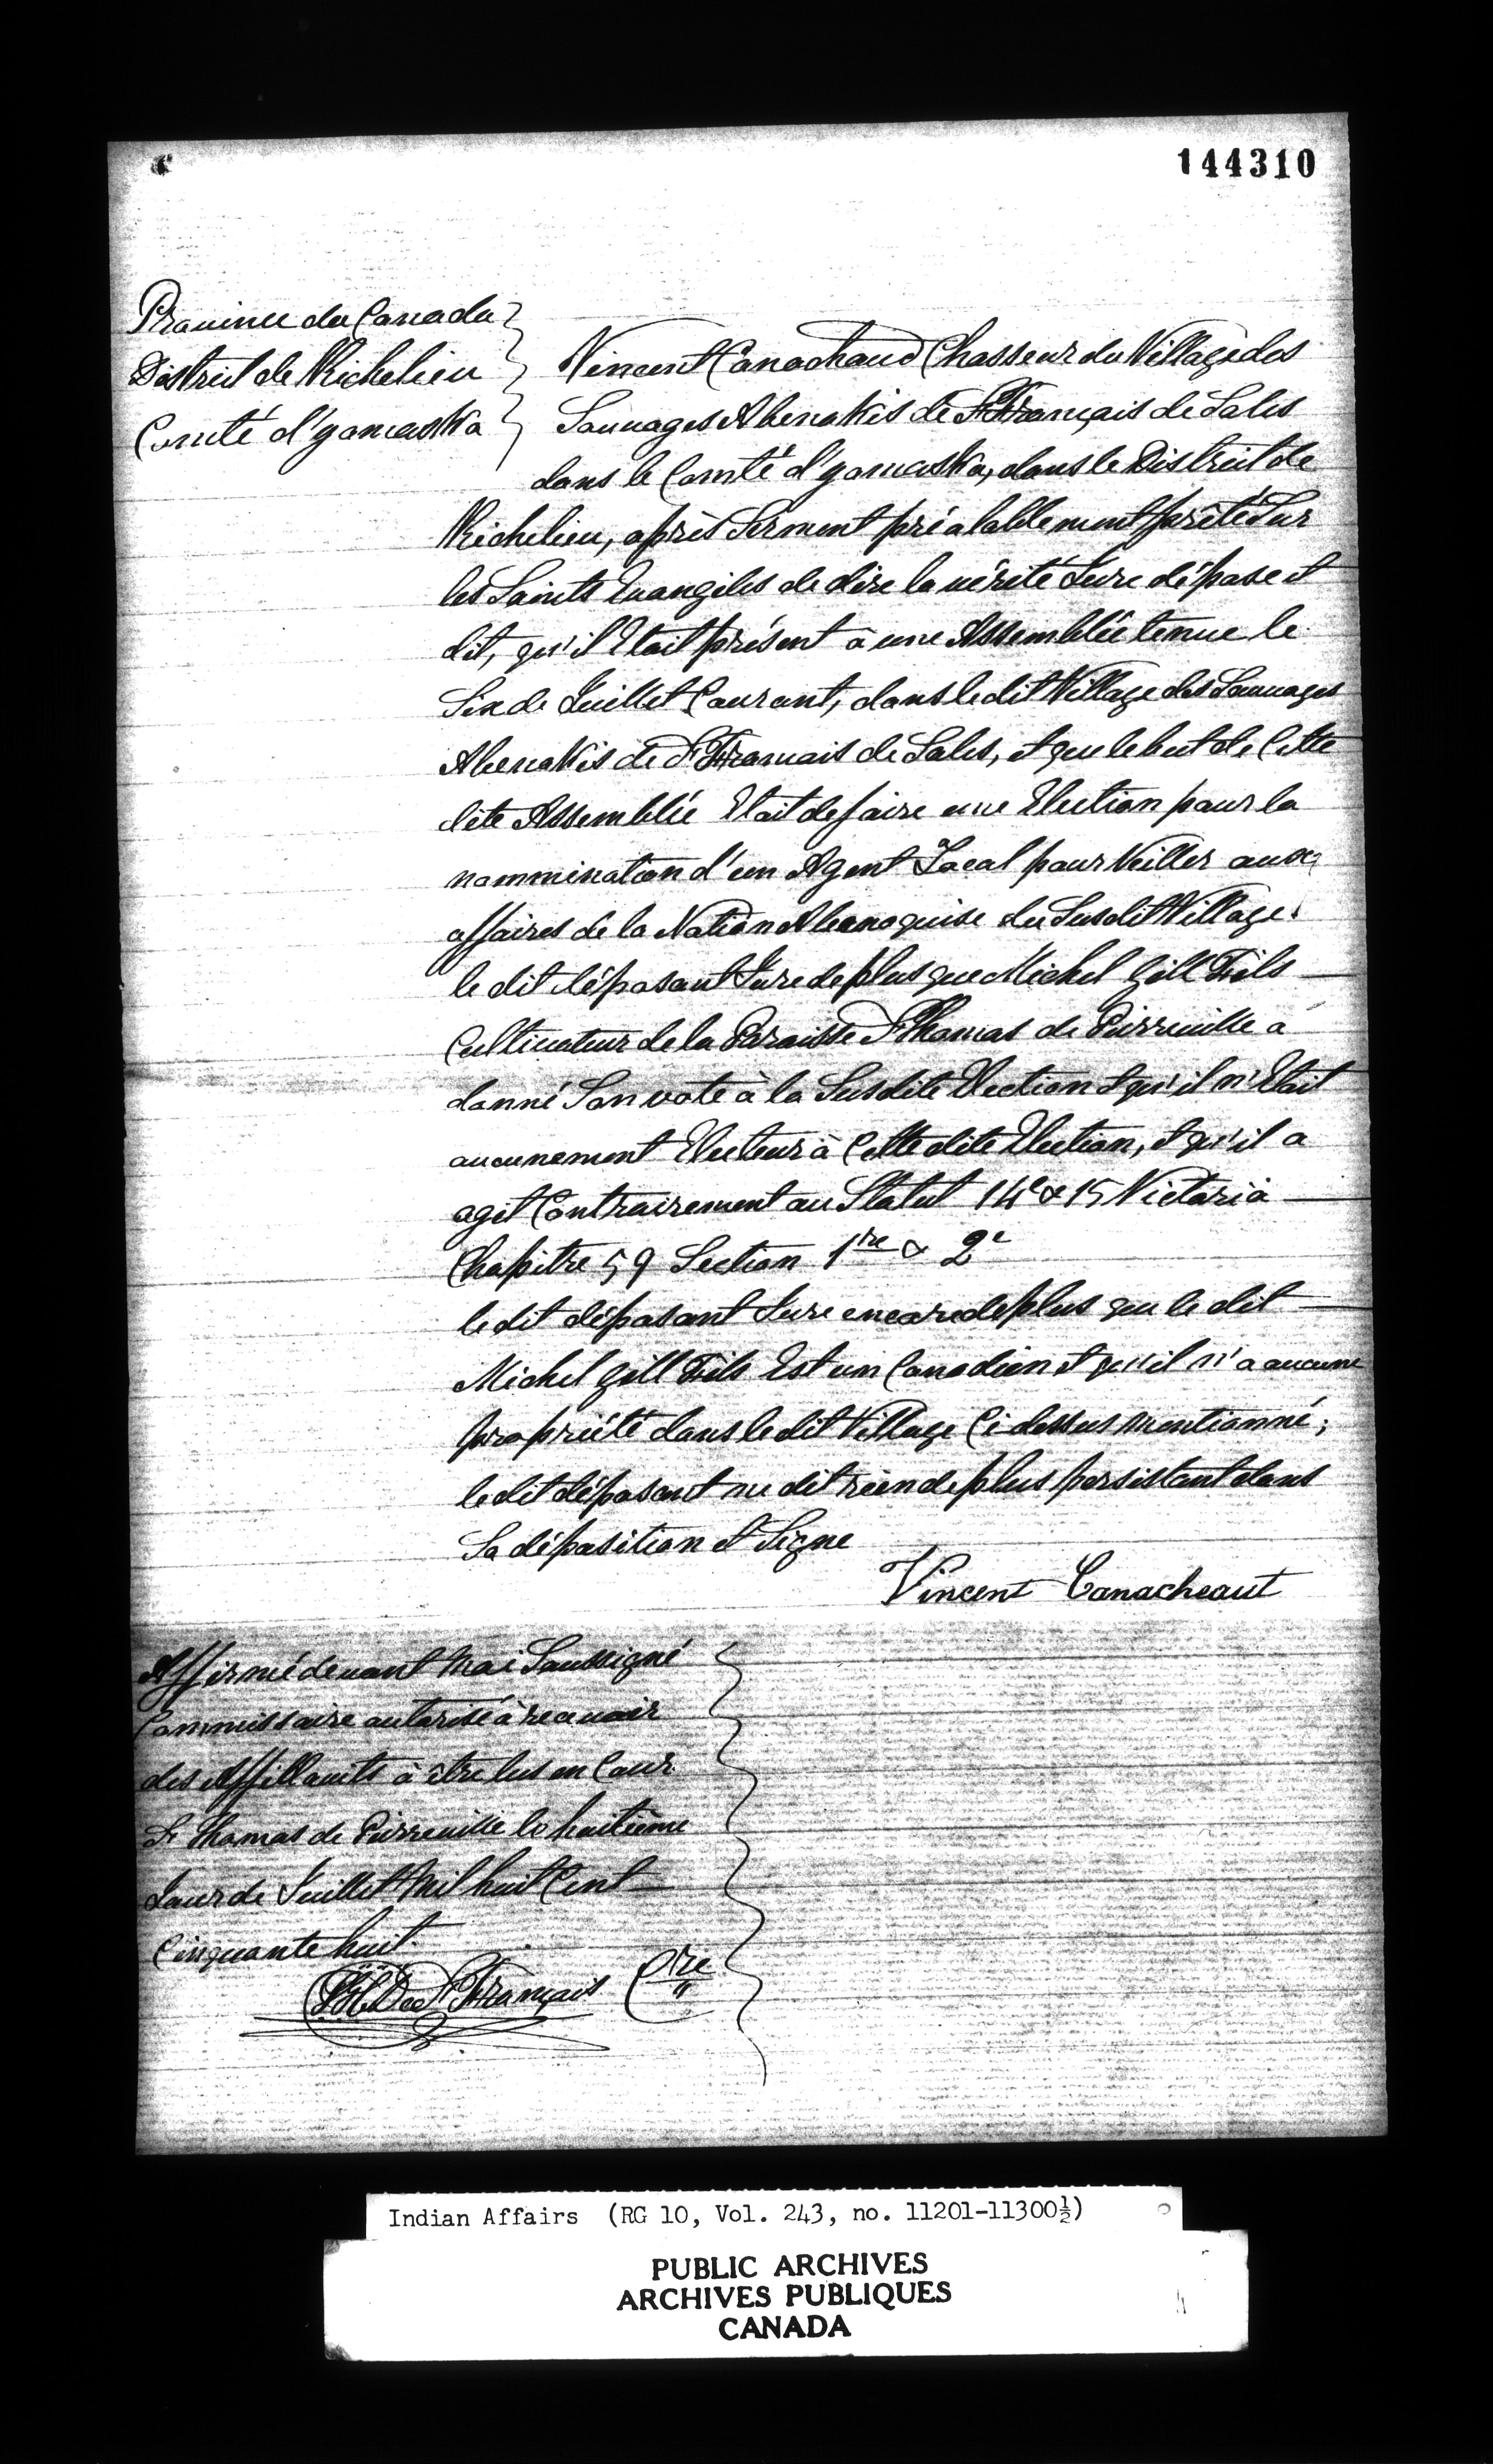 144310
Province du Canada
District de Richelieu
Comté d'yamaska
Vincent Canachaud Chasseur du Village des
Sauvages Abenakis de St François de Sales
dans le Comté d'yamaska, dans le District de
Richelieu, après Serment préalablement prêté Sur
les Saints Evangiles de dire la vérité Jure dépose et
dit, qu'il Etait présent à une Assemblée tenue le
Six de Juillet Courant, dans le dit Village des Sauvages
Abenakis de St François de Sales, et que le but de Cette
dite Assemblée Etait de faire une Election pour la
nommination d'un Agent Local pour Veiller aux
affaires de la Nation Abenaquise du Susdit Village.
le dit déposant Jure de plus que Michel Gill Fils
Cultivateur de la Paroisse St Thomas de Pierreville a
donné Son vote à la Susdite Election et qu'il n'Etait
aucunement Electeur à Cette dite Election, et qu'il a
agit Contrairement au Statut 14e & 15 Victoria
Chapitre 59 Section 1re & 2e
le dit déposant Jure encore de plus que le dit
Michel Gill Fils Est un Canadien et qu'il n'a aucune
propriété dans le dit Village Ci-dessus mentionné;
le dit déposant ne dit rien de plus persistant dans
Sa déposition et Signe
Vincent Canacheaut
Affirmé devant Moi Soussigné
Commissaire autorisé à recevoir
des Affidavits à être lus en Cour
St Thomas de Pierreville le huitième
Jour de Juillet Mil huit Cent
Cinquante huit
St François Cre
Indian Affairs (RG 10, Vol. 243, no. 11201-11300½)
PUBLIC ARCHIVES
ARCHIVES PUBLIQUES
CANADA